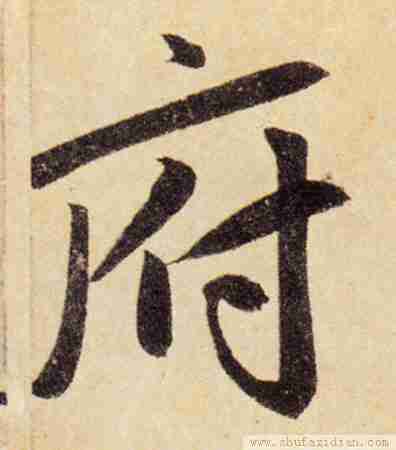 府
www.shufazidian.com